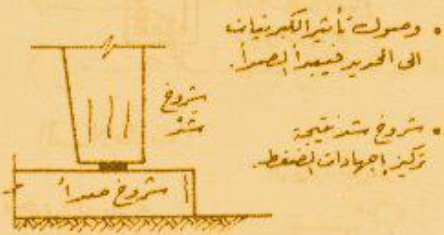 • وصول تأثير الكبريتيات
الى الحديد فيبدأ الصدأ.
شروخ
شد
• شروخ شد نتيجة
تركيز إجهادات الضغط.
شروخ صدأ